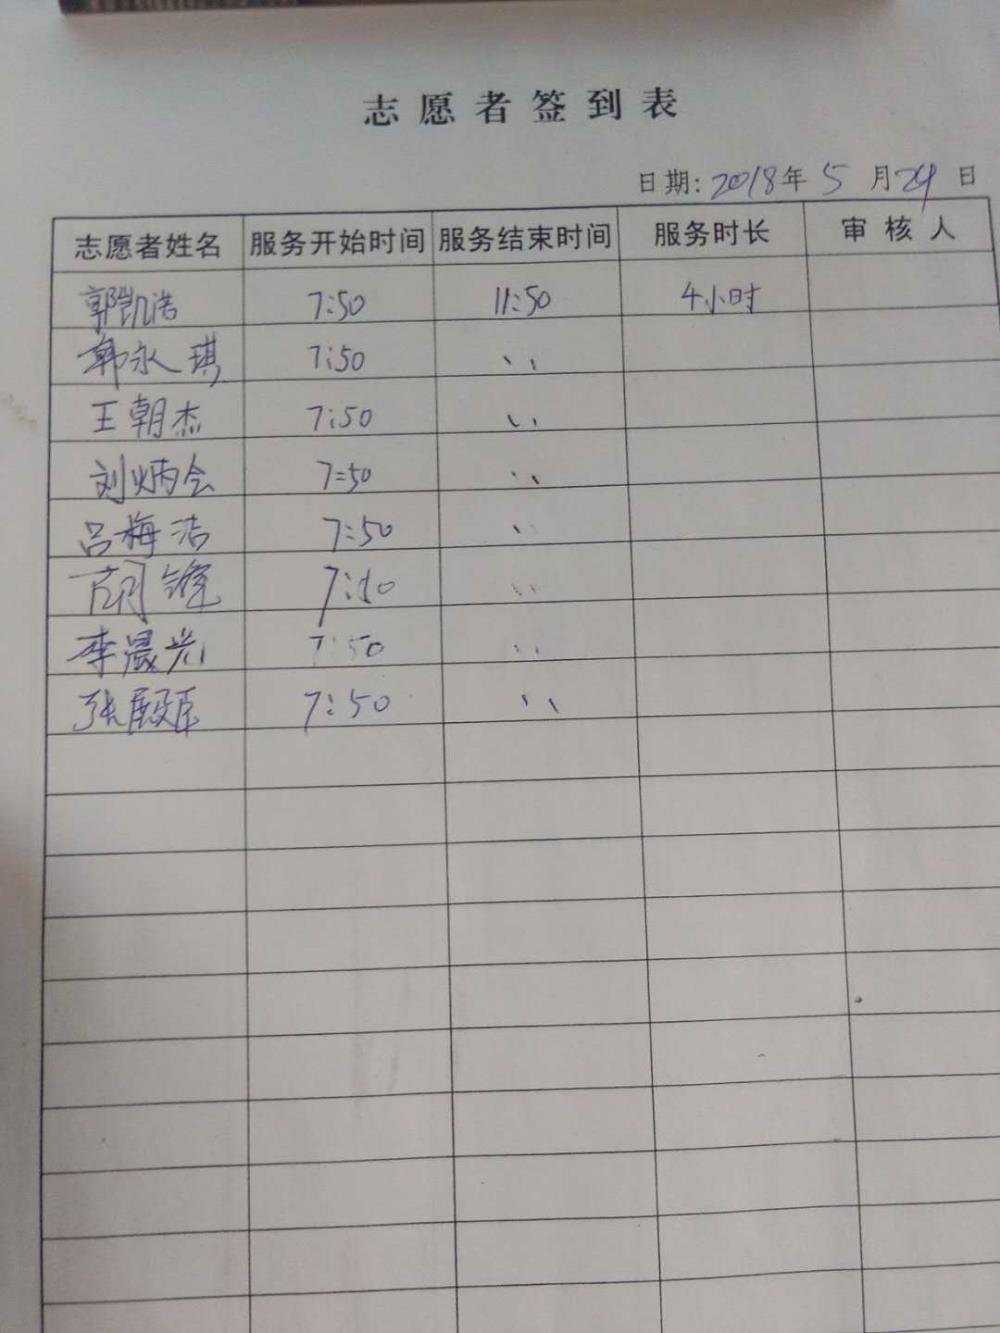 志愿者签到表
日期: 2018年 5 月 24 日
志愿者姓名 服务开始时间 服务结束时间 服务时长 审核人
郭凯浩 7:50 11:50 4小时
郭永琪 7:50 〃
王朝杰 7:50 〃
刘炳会 7:50 〃
吕梅洁 7:50 〃
7:50 〃
李晨兴 7:50 〃
张殿臣 7:50 〃